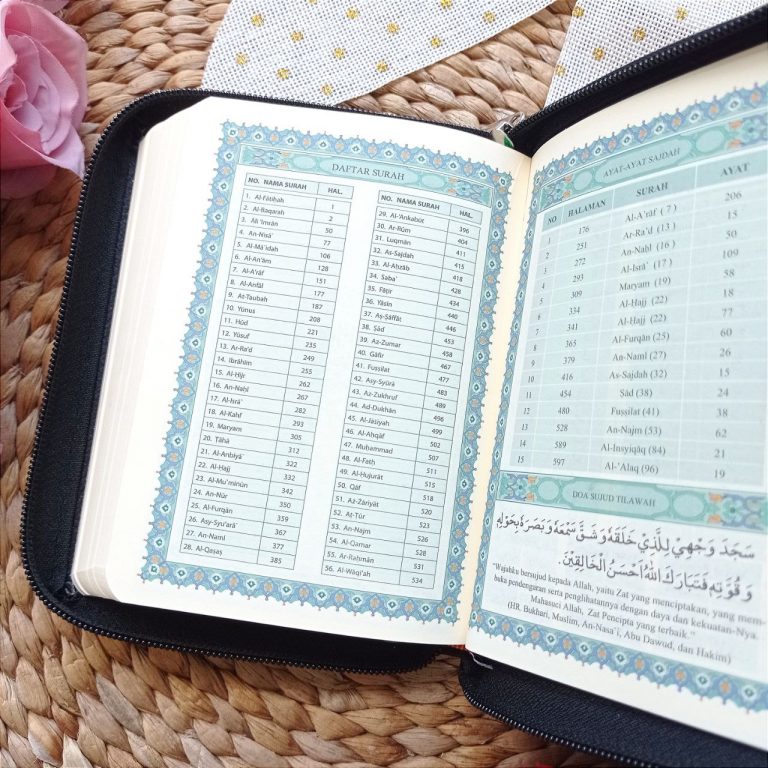 DAFTAR SURAH
NO. NAMA SURAH HAL.
1. Al-Fātiḥah 1
2. Al-Baqarah 2
3. Āli 'Imrān 50
4. An-Nisā' 77
5. Al-Mā'idah 106
6. Al-An'ām 128
7. Al-A'rāf 151
8. Al-Anfāl 177
9. At-Taubah 187
10. Yūnus 208
11. Hūd 221
12. Yūsuf 235
13. Ar-Ra'd 249
14. Ibrāhīm 255
15. Al-Ḥijr 262
16. An-Naḥl 267
17. Al-Isrā' 282
18. Al-Kahf 293
19. Maryam 305
20. Ṭāhā 312
21. Al-Anbiyā' 322
22. Al-Ḥajj 332
23. Al-Mu'minūn 342
24. An-Nūr 350
25. Al-Furqān 359
26. Asy-Syu'arā' 367
27. An-Naml 377
28. Al-Qaṣaṣ 385
NO. NAMA SURAH HAL.
29. Al-'Ankabūt 396
30. Ar-Rūm 404
31. Luqmān 411
32. As-Sajdah 415
33. Al-Aḥzāb 418
34. Saba' 428
35. Fāṭir 434
36. Yāsīn 440
37. Aṣ-Ṣāffāt 446
38. Ṣād 453
39. Az-Zumar 458
40. Gāfir 467
41. Fuṣṣilat 477
42. Asy-Syūrā 483
43. Az-Zukhruf 489
44. Ad-Dukhān 496
45. Al-Jāṡiyah 499
46. Al-Aḥqāf 502
47. Muḥammad 507
48. Al-Fatḥ 511
49. Al-Ḥujurāt 515
50. Qāf 518
51. Aż-Żāriyāt 520
52. Aṭ-Ṭūr 523
53. An-Najm 526
54. Al-Qamar 528
55. Ar-Raḥmān 531
56. Al-Wāqi'ah 534
AYAT-AYAT SAJDAH
NO HALAMAN SURAH AYAT
1 176 Al-A'rāf ( 7 ) 206
2 251 Ar-Ra'd (13 ) 15
3 272 An-Naḥl (16 ) 50
4 293 Al-Isrā' (17 ) 109
5 309 Maryam (19) 58
6 334 Al-Ḥajj (22) 18
7 341 Al-Ḥajj (22) 77
8 365 Al-Furqān (25) 60
9 379 An-Naml (27) 26
10 416 As-Sajdah (32) 15
11 454 Ṣād (38) 24
12 480 Fuṣṣilat (41) 38
13 528 An-Najm (53) 62
14 589 Al-Insyiqāq (84) 21
15 597 Al-'Alaq (96) 19
DOA SUJUD TILAWAH
سَجَدَ وَجْهِيَ لِلَّذِيْ خَلَقَهٗ وَشَقَّ سَمْعَهٗ وَبَصَرَهٗ بِحَوْلِهٖ
وَقُوَّتِهٖ فَتَبَارَكَ اللّٰهُ اَحْسَنُ الْخَالِقِيْنَ.
"Wajahku bersujud kepada Allah, yaitu Zat yang menciptakan, yang mem-
buka pendengaran serta penglihatannya dengan daya dan kekuatan-Nya.
Mahasuci Allah, Zat Pencipta yang terbaik."
(HR. Bukhari, Muslim, An-Nasa'i, Abu Dawud, dan Hakim)